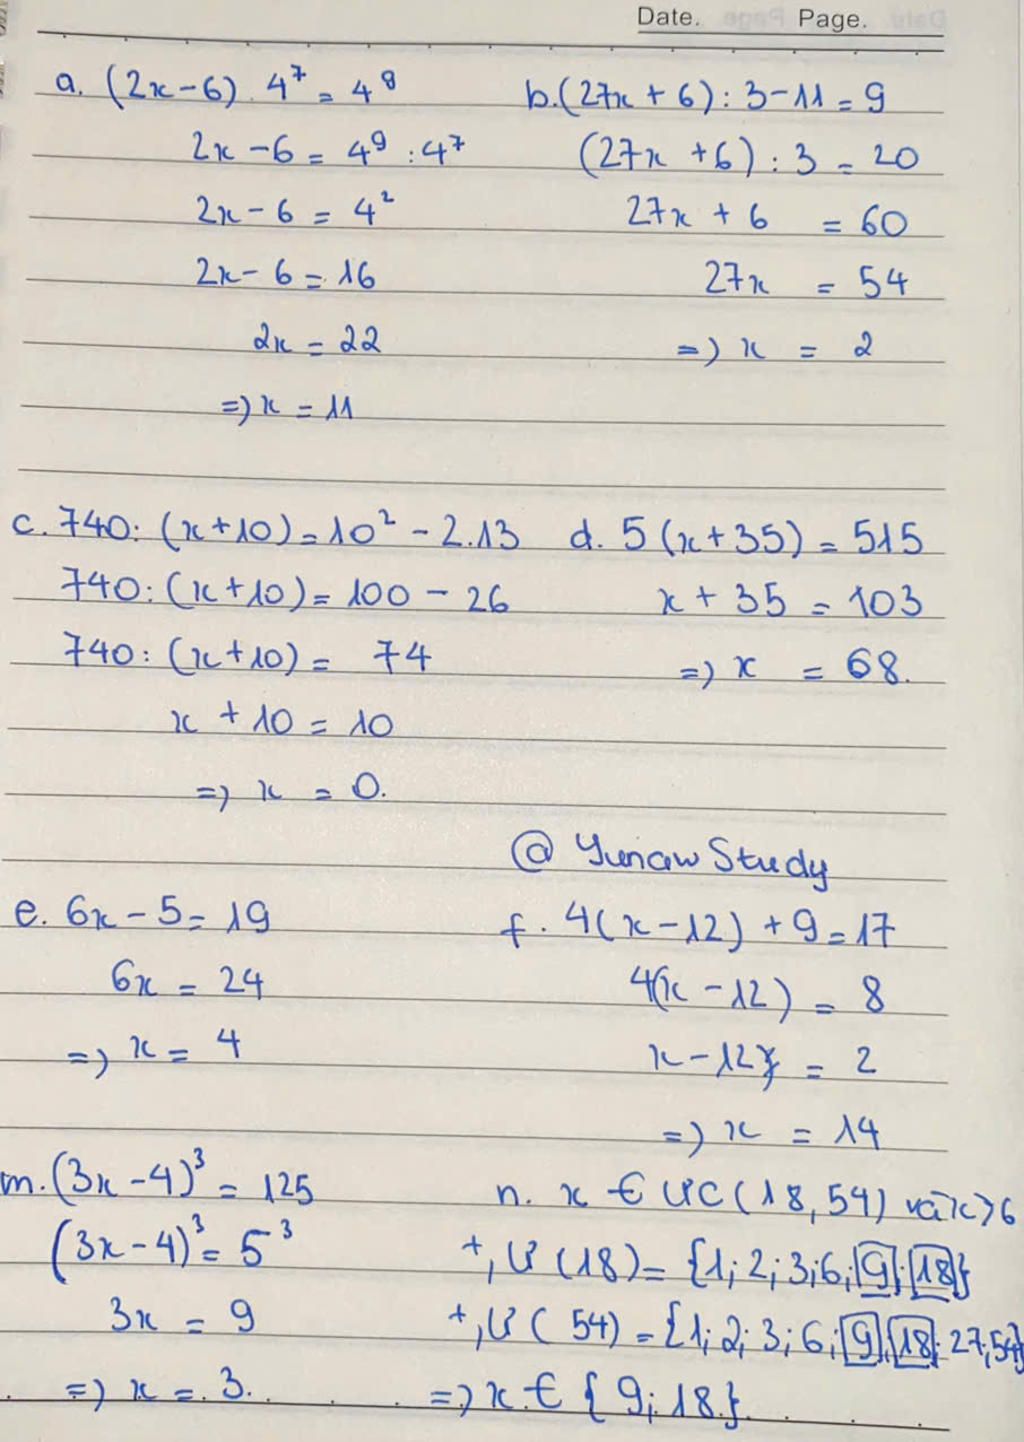 Date. Page.
a. (2x-6) . 4⁷ = 4⁹
2x - 6 = 4⁹ : 4⁷
2x - 6 = 4²
2x - 6 = 16
2x = 22
=> x = 11
b. (27x + 6) : 3 - 11 = 9
(27x + 6) : 3 = 20
27x + 6 = 60
27x = 54
=> x = 2
c. 740 : (x+10) = 10² - 2.13
740 : (x+10) = 100 - 26
740 : (x+10) = 74
x + 10 = 10
=> x = 0.
d. 5 (x+35) = 515
x + 35 = 103
=> x = 68.
@ Yunaw Study
e. 6x - 5 = 19
6x = 24
=> x = 4
f. 4(x-12) + 9 = 17
4(x-12) = 8
x - 12 = 2
=> x = 14
m. (3x-4)³ = 125
(3x-4)³ = 5³
3x = 9
=> x = 3.
n. x ∈ ƯC (18, 54) và x > 6
+, Ư (18) = {1; 2; 3; 6; 9; 18}
+, Ư (54) = {1; 2; 3; 6; 9; 18; 27; 54}
=> x ∈ { 9; 18 }.